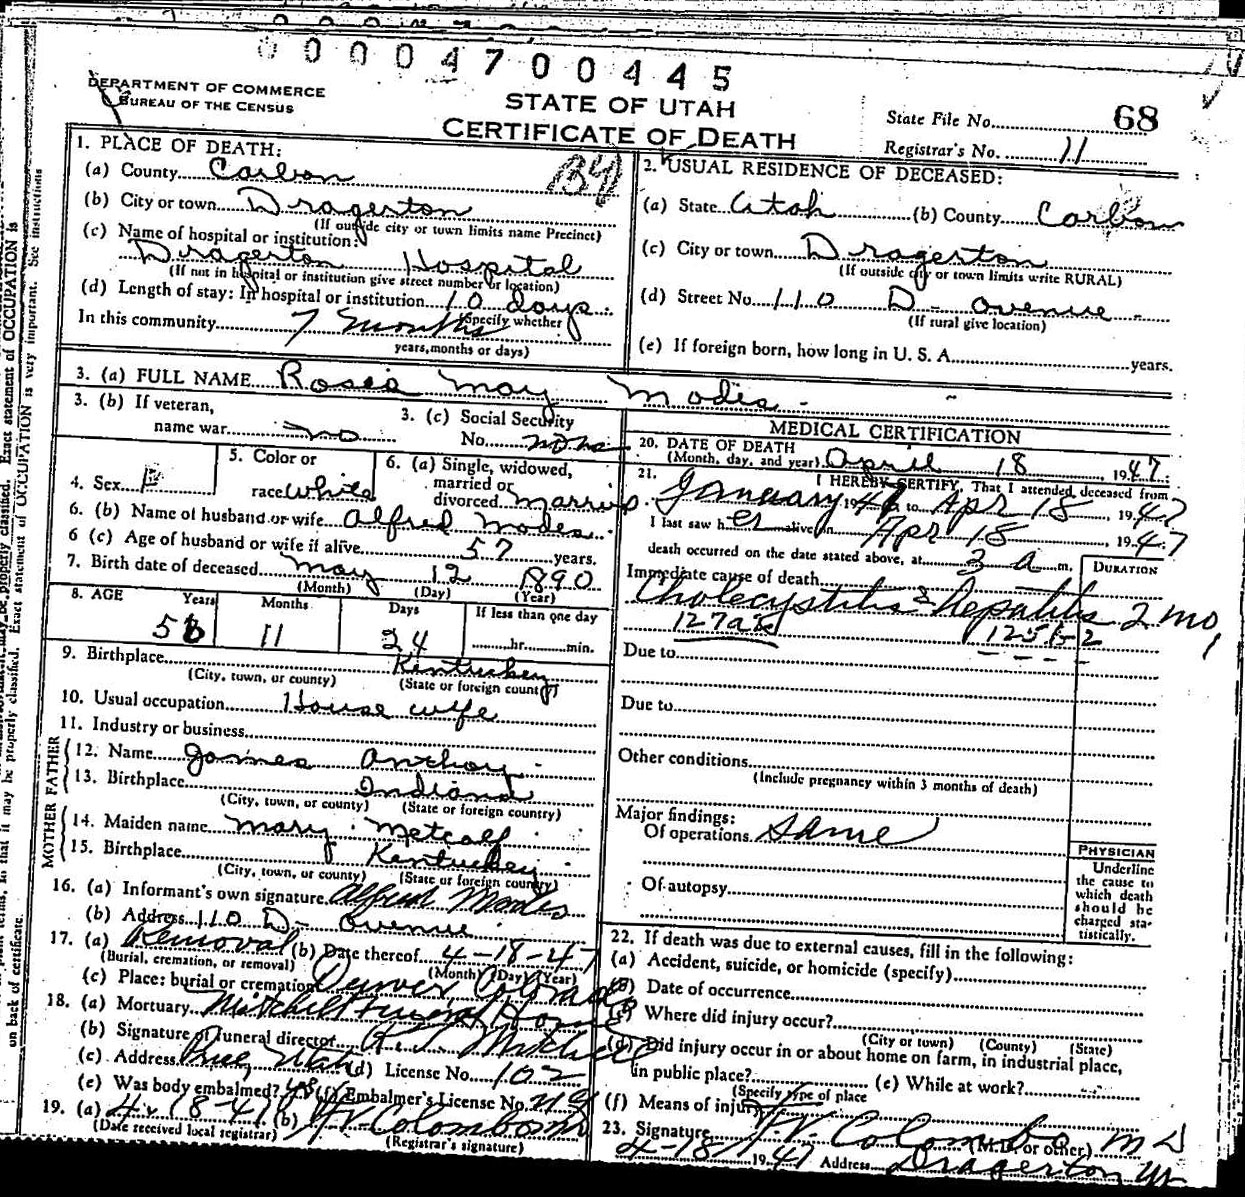 00004700445
DEPARTMENT OF COMMERCE
BUREAU OF THE CENSUS
STATE OF UTAH
CERTIFICATE OF DEATH
State File No. 68
Registrar's No. 11
1. PLACE OF DEATH:
(a) County Carbon
134
(b) City or town Dragerton
(If outside city or town limits name Precinct)
(c) Name of hospital or institution:
Dragerton Hospital
(If not in hospital or institution give street number or location)
(d) Length of stay: In hospital or institution 10 days
(Specify whether
In this community 7 months
years, months or days)
2. USUAL RESIDENCE OF DECEASED:
(a) State Utah (b) County Carbon
(c) City or town Dragerton
(If outside city or town limits write RURAL)
(d) Street No. 110 D - avenue -
(If rural give location)
(e) If foreign born, how long in U. S. A. years.
3. (a) FULL NAME Rosia May Modis -
3. (b) If veteran,
name war no
3. (c) Social Security
No. none
4. Sex F
5. Color or
race White
6. (a) Single, widowed,
married or
divorced married
6. (b) Name of husband or wife Alfred Modes
6 (c) Age of husband or wife if alive 57 years.
7. Birth date of deceased May 12 1890
(Month) (Day) (Year)
8. AGE Years Months Days If less than one day
56 11 24 hr. min.
9. Birthplace Kentuckey
(City, town, or county) (State or foreign country)
10. Usual occupation House wife
11. Industry or business
FATHER
12. Name James Anthoy
13. Birthplace Indiana
(City, town, or county) (State or foreign country)
MOTHER
14. Maiden name Mary Metcalf
15. Birthplace Kentuckey
(City, town, or county) (State or foreign country)
16. (a) Informant's own signature Alfred Modes
(b) Address 110 D - avenue
17. (a) Removal (b) Date thereof 4-18-47
(Burial, cremation, or removal) (Month) (Day) (Year)
(c) Place: burial or cremation Denver Colorado
18. (a) Mortuary Mitchell Funeral Home
(b) Signature of funeral director R. L. Mitchell
(c) Address Price, Utah (d) License No. 102
(e) Was body embalmed? yes (f) Embalmer's License No.
19. (a) 4-18-47 (b) F V Colombo
(Date received local registrar) (Registrar's signature)
MEDICAL CERTIFICATION
20. DATE OF DEATH
(Month, day, and year) April 18 1947.
21. I HEREBY CERTIFY, That I attended deceased from
January 1947 to Apr 18, 1947
I last saw her alive on Apr 18, 1947
death occurred on the date stated above, at 3 a m.
DURATION
Immediate cause of death
Cholecystitis & hepatitis 2 mo,
Due to
Due to
Other conditions
(Include pregnancy within 3 months of death)
Major findings:
Of operations Same
Of autopsy
PHYSICIAN
Underline
the cause to
which death
should be
charged sta-
tistically.
22. If death was due to external causes, fill in the following:
(a) Accident, suicide, or homicide (specify)
(b) Date of occurrence
(c) Where did injury occur?
(City or town) (County) (State)
(d) Did injury occur in or about home on farm, in industrial place,
in public place? (e) While at work?
(Specify type of place
(f) Means of injury
23. Signature F V Colombo M D
(M.D. or other)
4-18 1947 Address Dragerton Ut